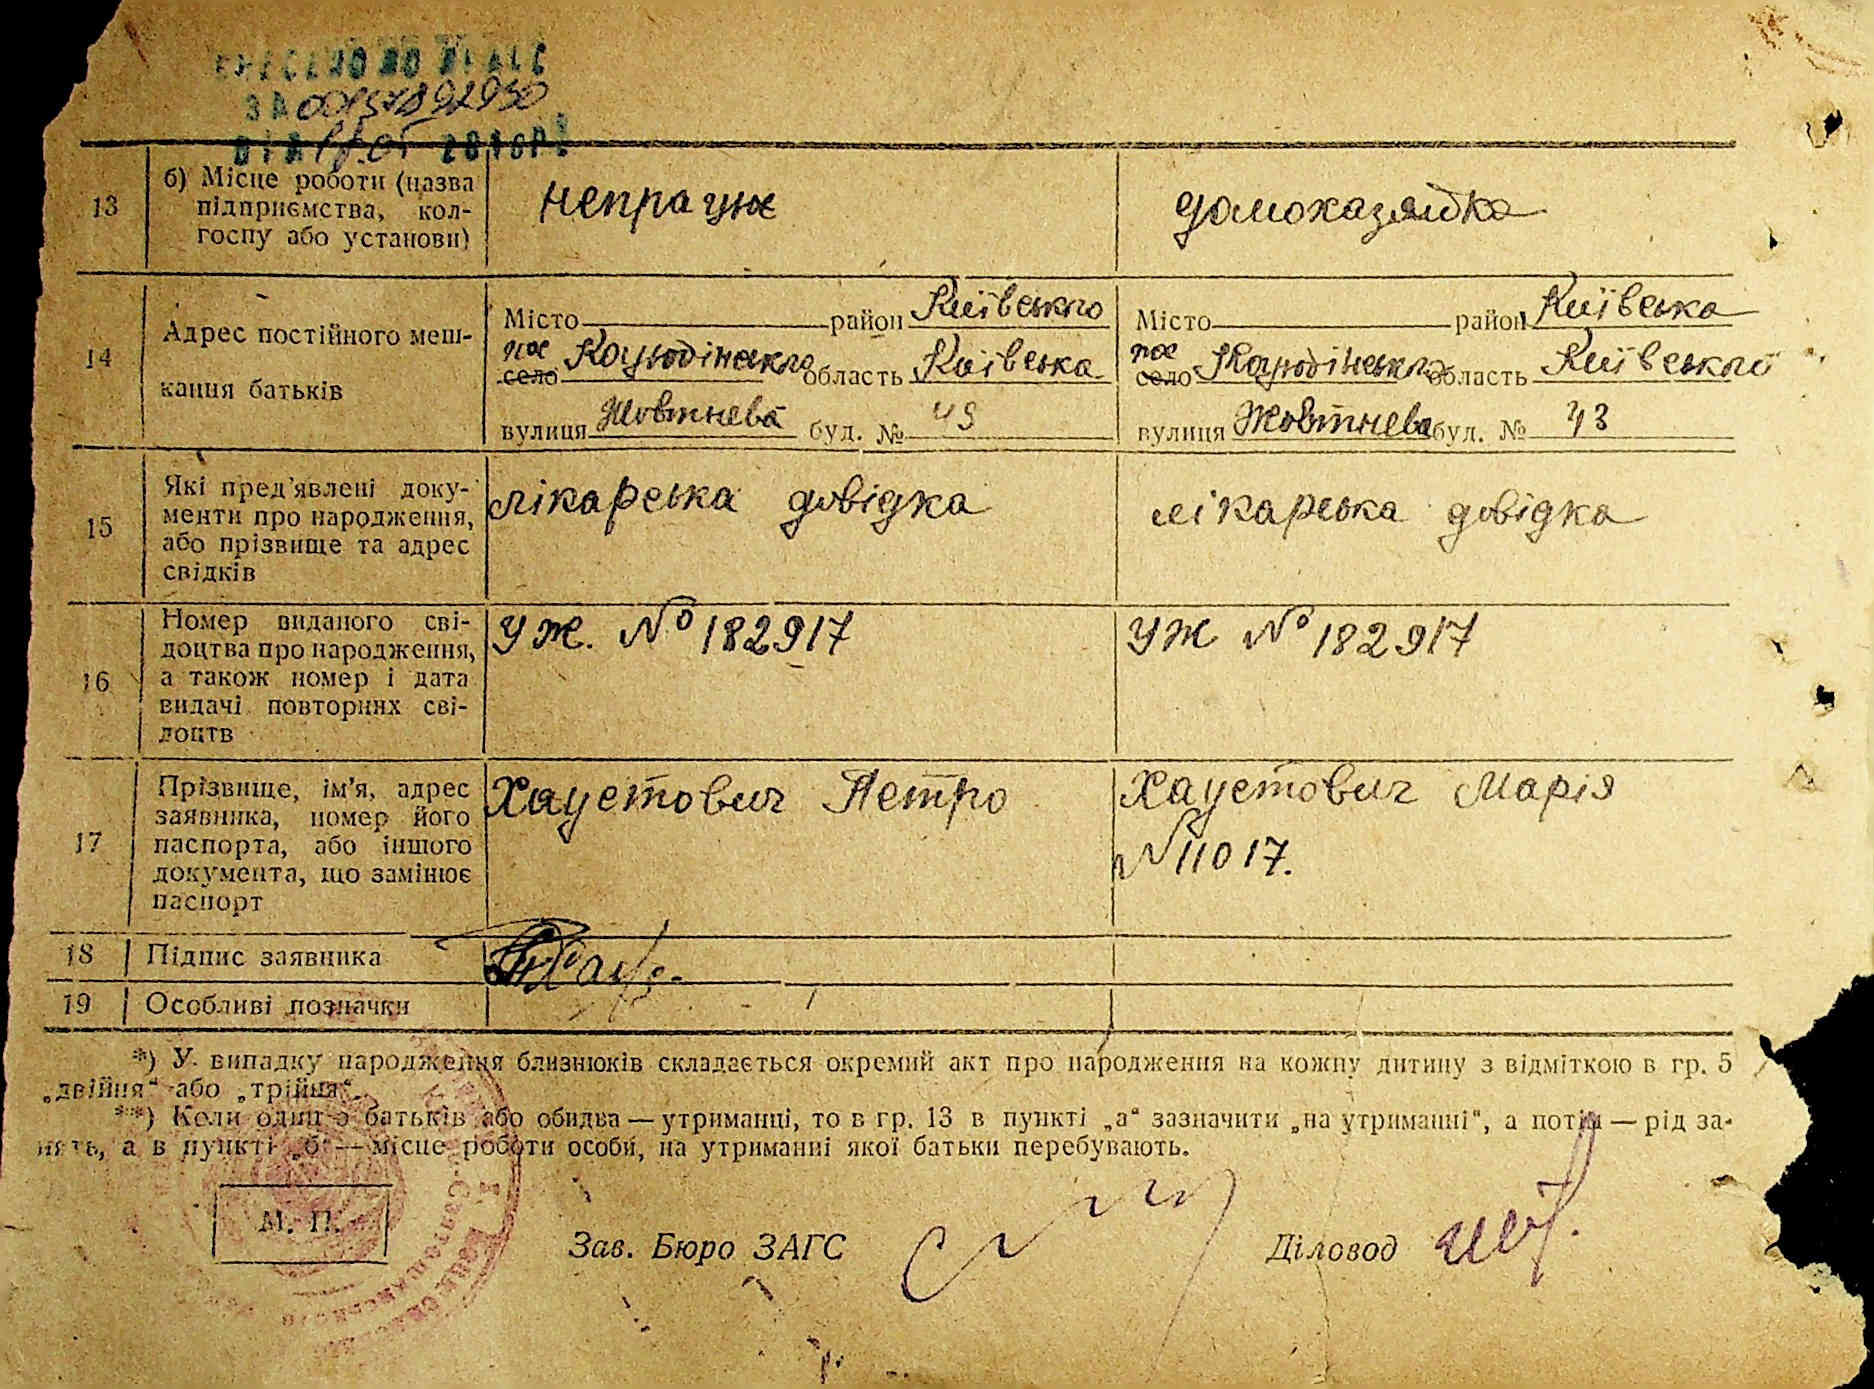 ВНЕСЕНО ДО ДРАЦС
ЗА 00137892950
ВІД 2016Р.
13 б) Місце роботи (назва підприємства, колгоспу або установи) непрацює домохазяйка
14 Адрес постійного мешкання батьків
Місто район Київського Місто район Київська
пос село Коцюбінського область Київська пос село Коцюбінського область Київського
вулиця Жовтнева буд. № 43 вулиця Жовтнева буд. № 43
15 Які пред'явлені документи про народження, або прізвище та адрес свідків лікарська довідка лікарська довідка
16 Номер виданого свідоцтва про народження, а також номер і дата видачі повторних свідоцтв УЖ. № 182917 УЖ № 182917
17 Прізвище, ім'я, адрес заявника, номер його паспорта, або іншого документа, що замінює паспорт Хаустович Петро Хаустович Марія
N 11017.
18 Підпис заявника
19 Особливі позначки
*) У випадку народження близнюків складається окремий акт про народження на кожну дитину з відміткою в гр. 5
„двійня“ або „трійня“.
**) Коли один з батьків або обидва — утриманці, то в гр. 13 в пункті „а“ зазначити „на утриманні“, а потім — рід за-
нять, а в пункті „б“ — місце роботи особи, на утриманні якої батьки перебувають.
М. П.
Зав. Бюро ЗАГС Діловод